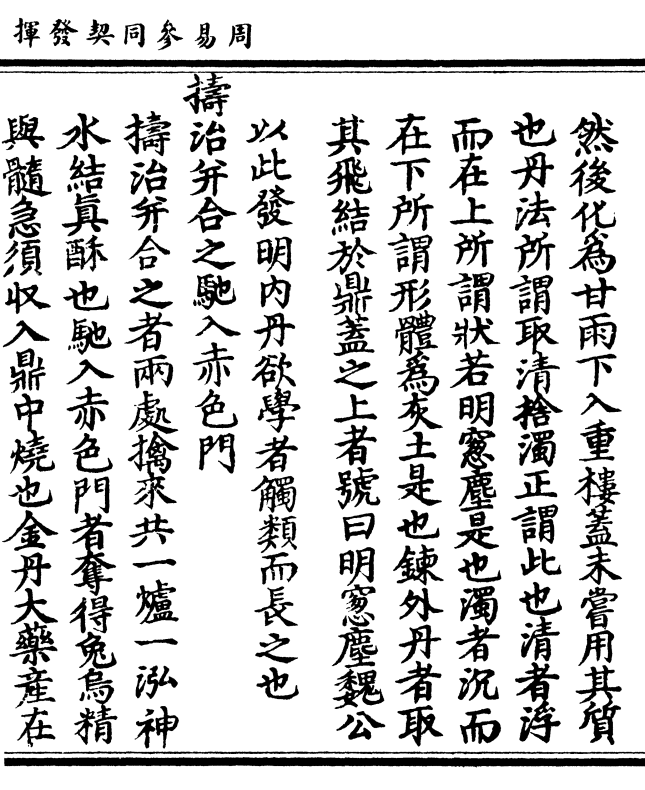 周易參同契發揮
然後化爲甘雨下入重樓蓋未嘗用其質
也丹法所謂取清捨濁正謂此也清者浮
而在上所謂狀若明窻塵是也濁者沉而
在下所謂形體爲灰土是也鍊外丹者取
其飛結於鼎蓋之上者號曰明窻塵魏公
以此發明内丹欲學者觸類而長之也
擣治并合之馳入赤色門
擣治并合之者兩處擒來共一爐一泓神
水結眞酥也馳入赤色門者奪得兔烏精
與髓急須収入鼎中燒也金丹大藥産在